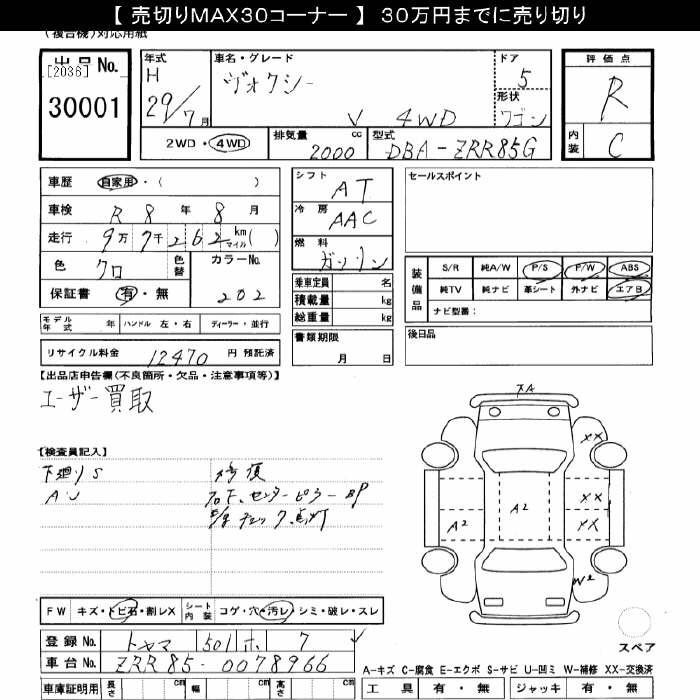 【 売切りMAX30コーナー 】 30万円までに売り切り
(複合機)対応用紙
出品No.
[2036]
30001
年式
H
29/7月
車名・グレード
ヴォクシー
4WD
ドア
5
形状
ワゴン
2WD・4WD
排気量
2000
cc
型式
DBA-ZRR85G
評価点
R
内装
C
車歴
自家用・( )
車検
R 8 年 8 月
走行
9万7千262 km マイル( )
色
クロ
色替
カラーNo.
202
保証書
有・無
シフト
AT
冷房
AAC
燃料
ガソリン
乗車定員 名
積載量 kg
総重量 kg
書類期限
月 日
セールスポイント
装備品
S/R 純A/W P/S P/W ABS
純TV 純ナビ 革シート 外ナビ エアB
ナビ型番:
後日品
モデル年式 年
ハンドル 左・右
ディーラー・並行
リサイクル料金 12470 円 預託済
【出品店申告欄(不良箇所・欠品・注意事項等)】
ユーザー買取
【検査員記入】
下廻りS
AU
修復
右下、センターピラーBP
点灯
XA
XX
XX
XX
A2
A2
W2
FW キズ・トビ石・割レX
シート内装 コゲ・穴・汚レ・シミ・破レ・スレ
登録No. トヤマ 501 ホ 7
車台No. ZRR85-0078966
スペア
A-キズ C-腐食 E-エクボ S-サビ U-凹ミ W-補修 XX-交換済
車庫証明用 長さ cm 幅 cm 高さ cm
工具 有・無 ジャッキ 有・無